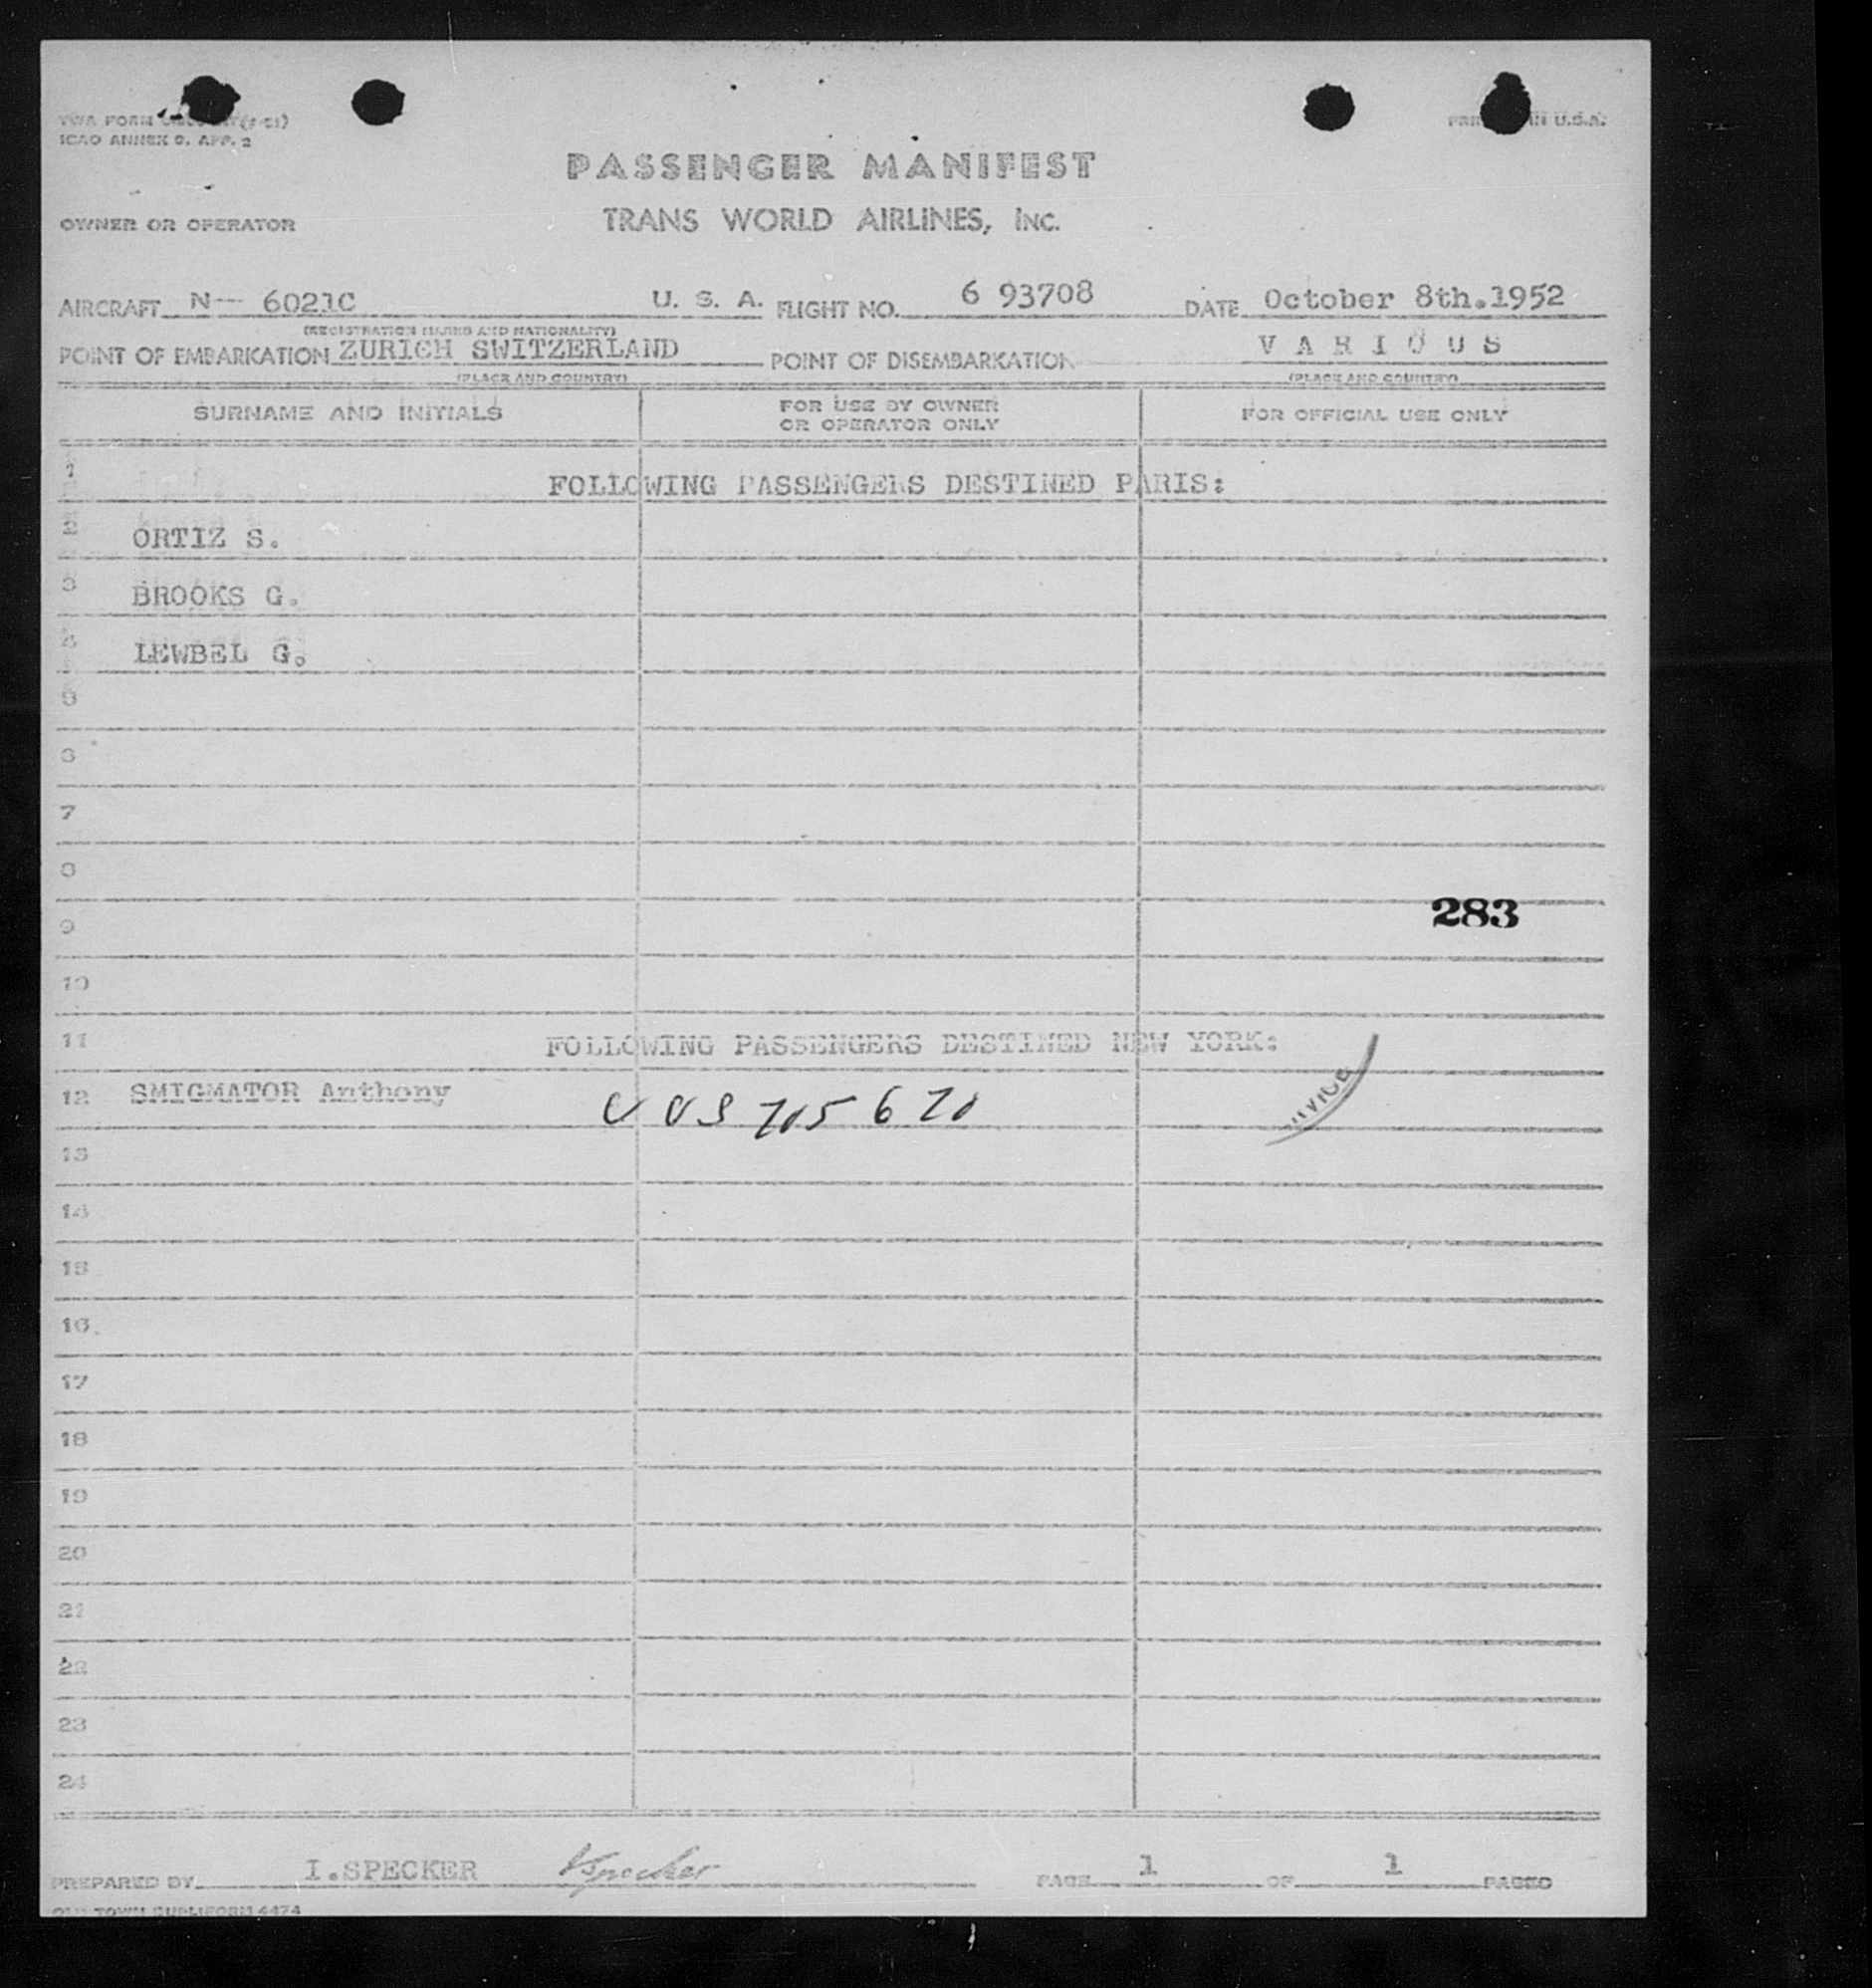 ICAO ANNEX 9, APP. 2
PASSENGER MANIFEST
OWNER OR OPERATOR
TRANS WORLD AIRLINES, INC.
AIRCRAFT N-- 6021C U. S. A. FLIGHT NO. 6 93708 DATE October 8th.1952
(REGISTRATION MARKS AND NATIONALITY)
POINT OF EMBARKATION ZURICH SWITZERLAND POINT OF DISEMBARKATION V A R I O U S
(PLACE AND COUNTRY) (PLACE AND COUNTRY)
SURNAME AND INITIALS FOR USE BY OWNER OR OPERATOR ONLY FOR OFFICIAL USE ONLY
1 FOLLOWING PASSENGERS DESTINED PARIS:
2 ORTIZ S.
3 BROOKS G.
4 LEWBEL G.
5
6
7
8
283
9
10
11 FOLLOWING PASSENGERS DESTINED NEW YORK:
12 SMIGMATOR Anthony
13
14
15
16
17
18
19
20
21
22
23
24
PREPARED BY I.SPECKER ISpecker PAGE 1 OF 1 PAGES
OLD TOWN DUPLIFORM 4474